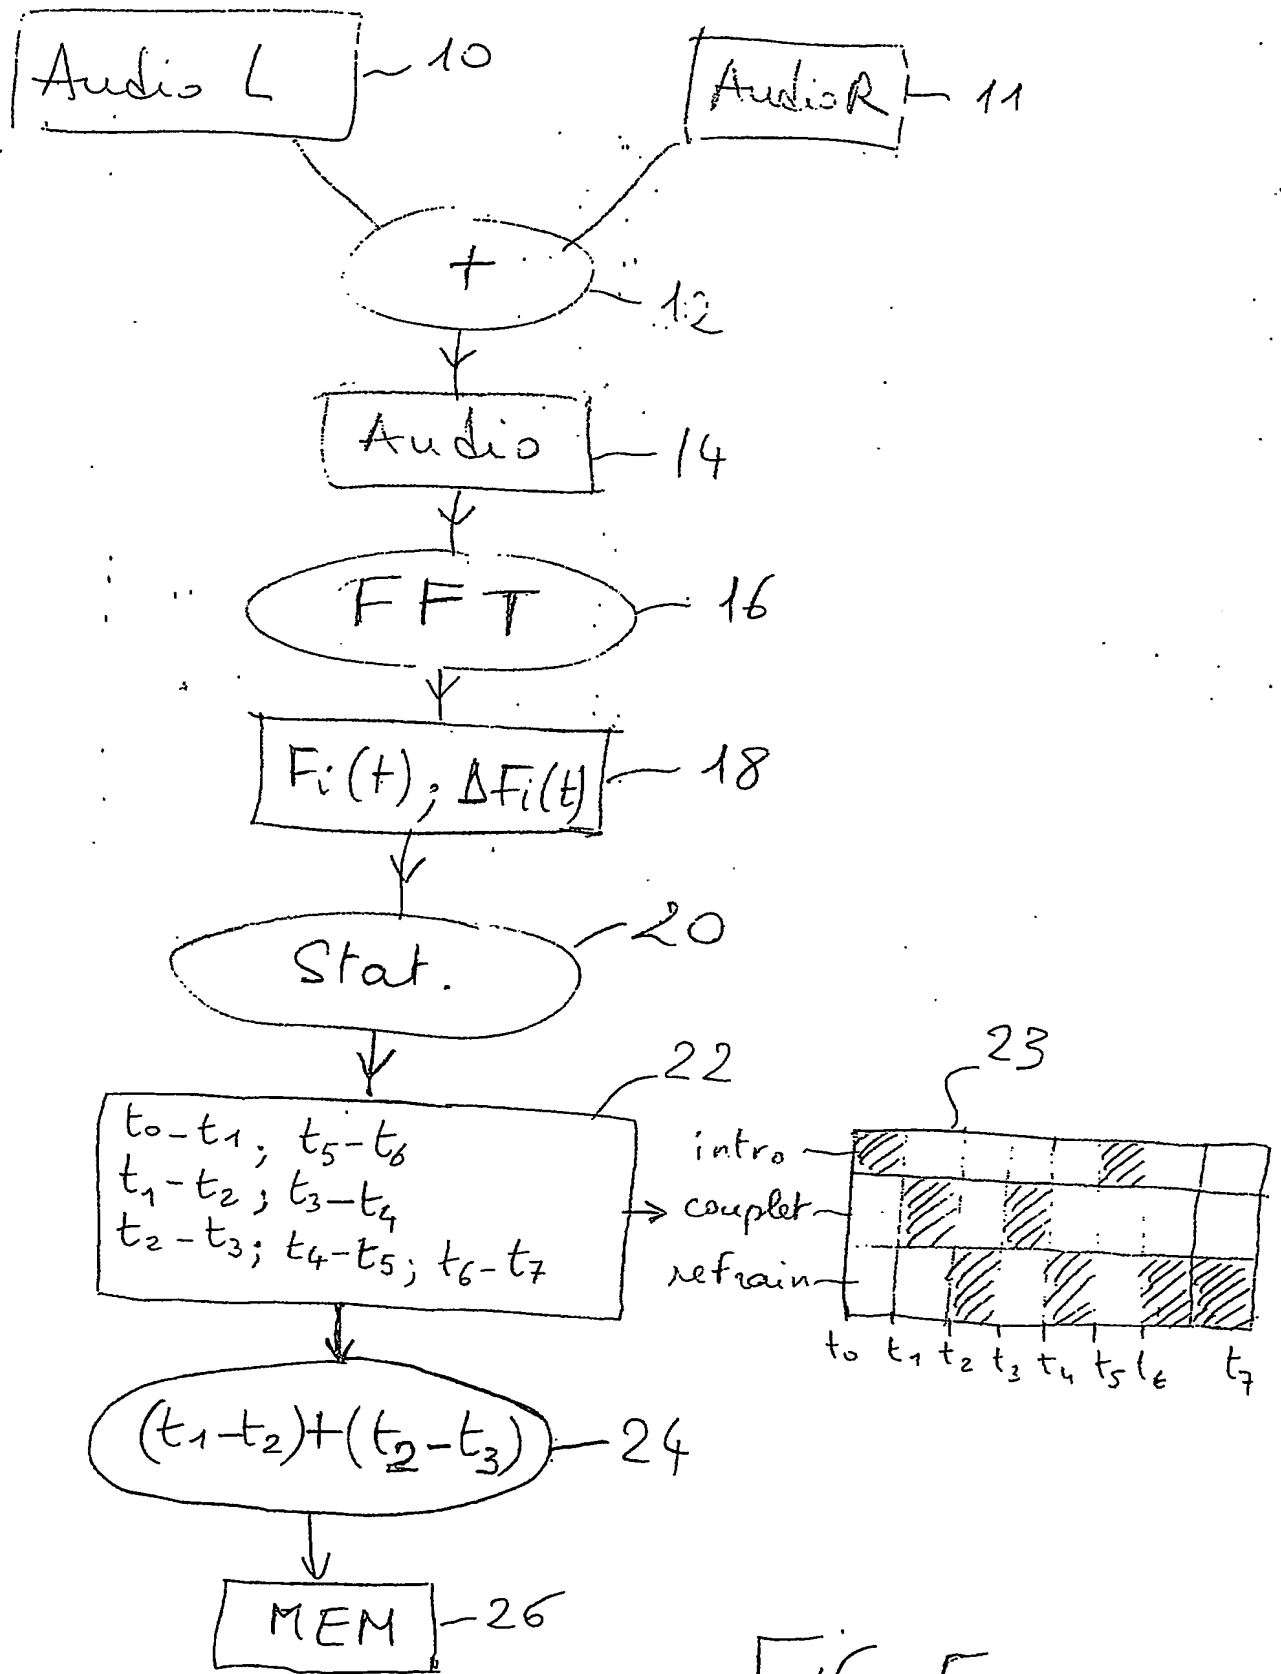 Audio L
10
Audio R
11
+
12
Audio
14
FFT
16
Fi(t); ΔFi(t)
18
Stat.
20
22
t0-t1; t5-t6
t1-t2; t3-t4
t2-t3; t4-t5; t6-t7
23
intro
couplet
refrain
t0 t1 t2 t3 t4 t5 t6 t7
(t1-t2)+(t2-t3)
24
MEM
26